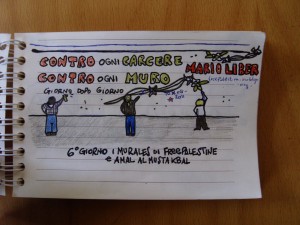 CONTRO OGNI CARCERE
CONTRO OGNI MURO
MARIO LIBER
GIORNO DOPO GIORNO
6° GIORNO I MURALES DI FREEPALESTINE
E AMAL AL MOSTAKBAL